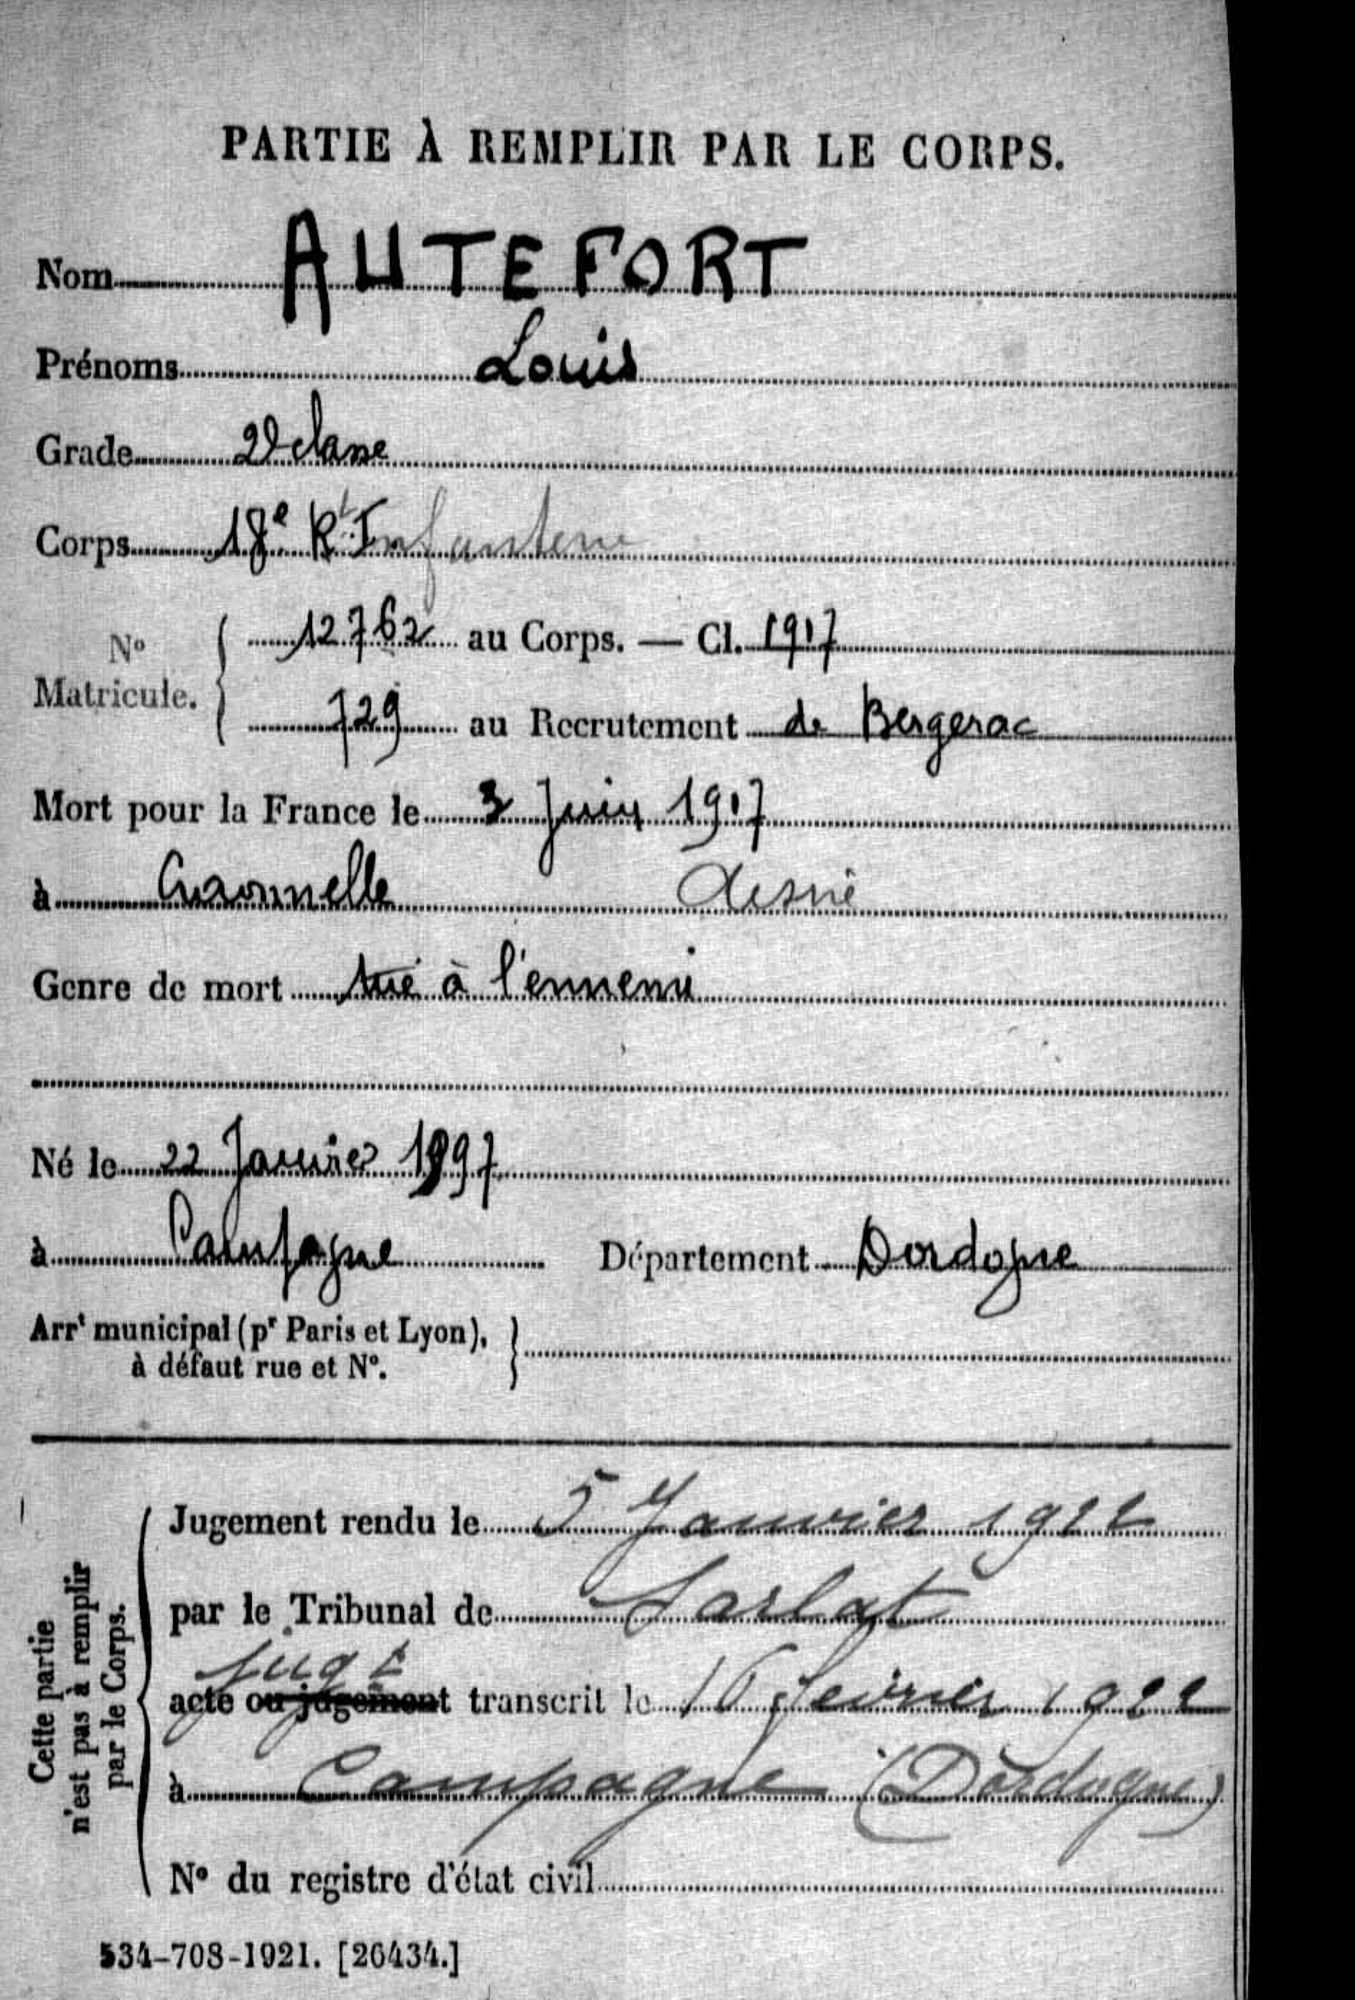 PARTIE À REMPLIR PAR LE CORPS.
Nom AUTEFORT
Prénoms Louis
Grade 2e classe
Corps 18e Rt Infanterie
No Matricule. 12762 au Corps. — Cl. 1917
729 au Recrutement de Bergerac
Mort pour la France le 3 Juin 1917
à Craonnelle Aisne
Genre de mort tué à l'ennemi
Né le 22 Janvier 1897
à Campagne Département Dordogne
Arrt municipal (pr Paris et Lyon),
à défaut rue et No.
Cette partie n'est pas à remplir par le Corps.
Jugement rendu le 5 Janvier 1922
par le Tribunal de Sarlat
jugt
acte ou jugement transcrit le 16 février 1922
à Campagne (Dordogne)
No du registre d'état civil
534-708-1921. [26434.]